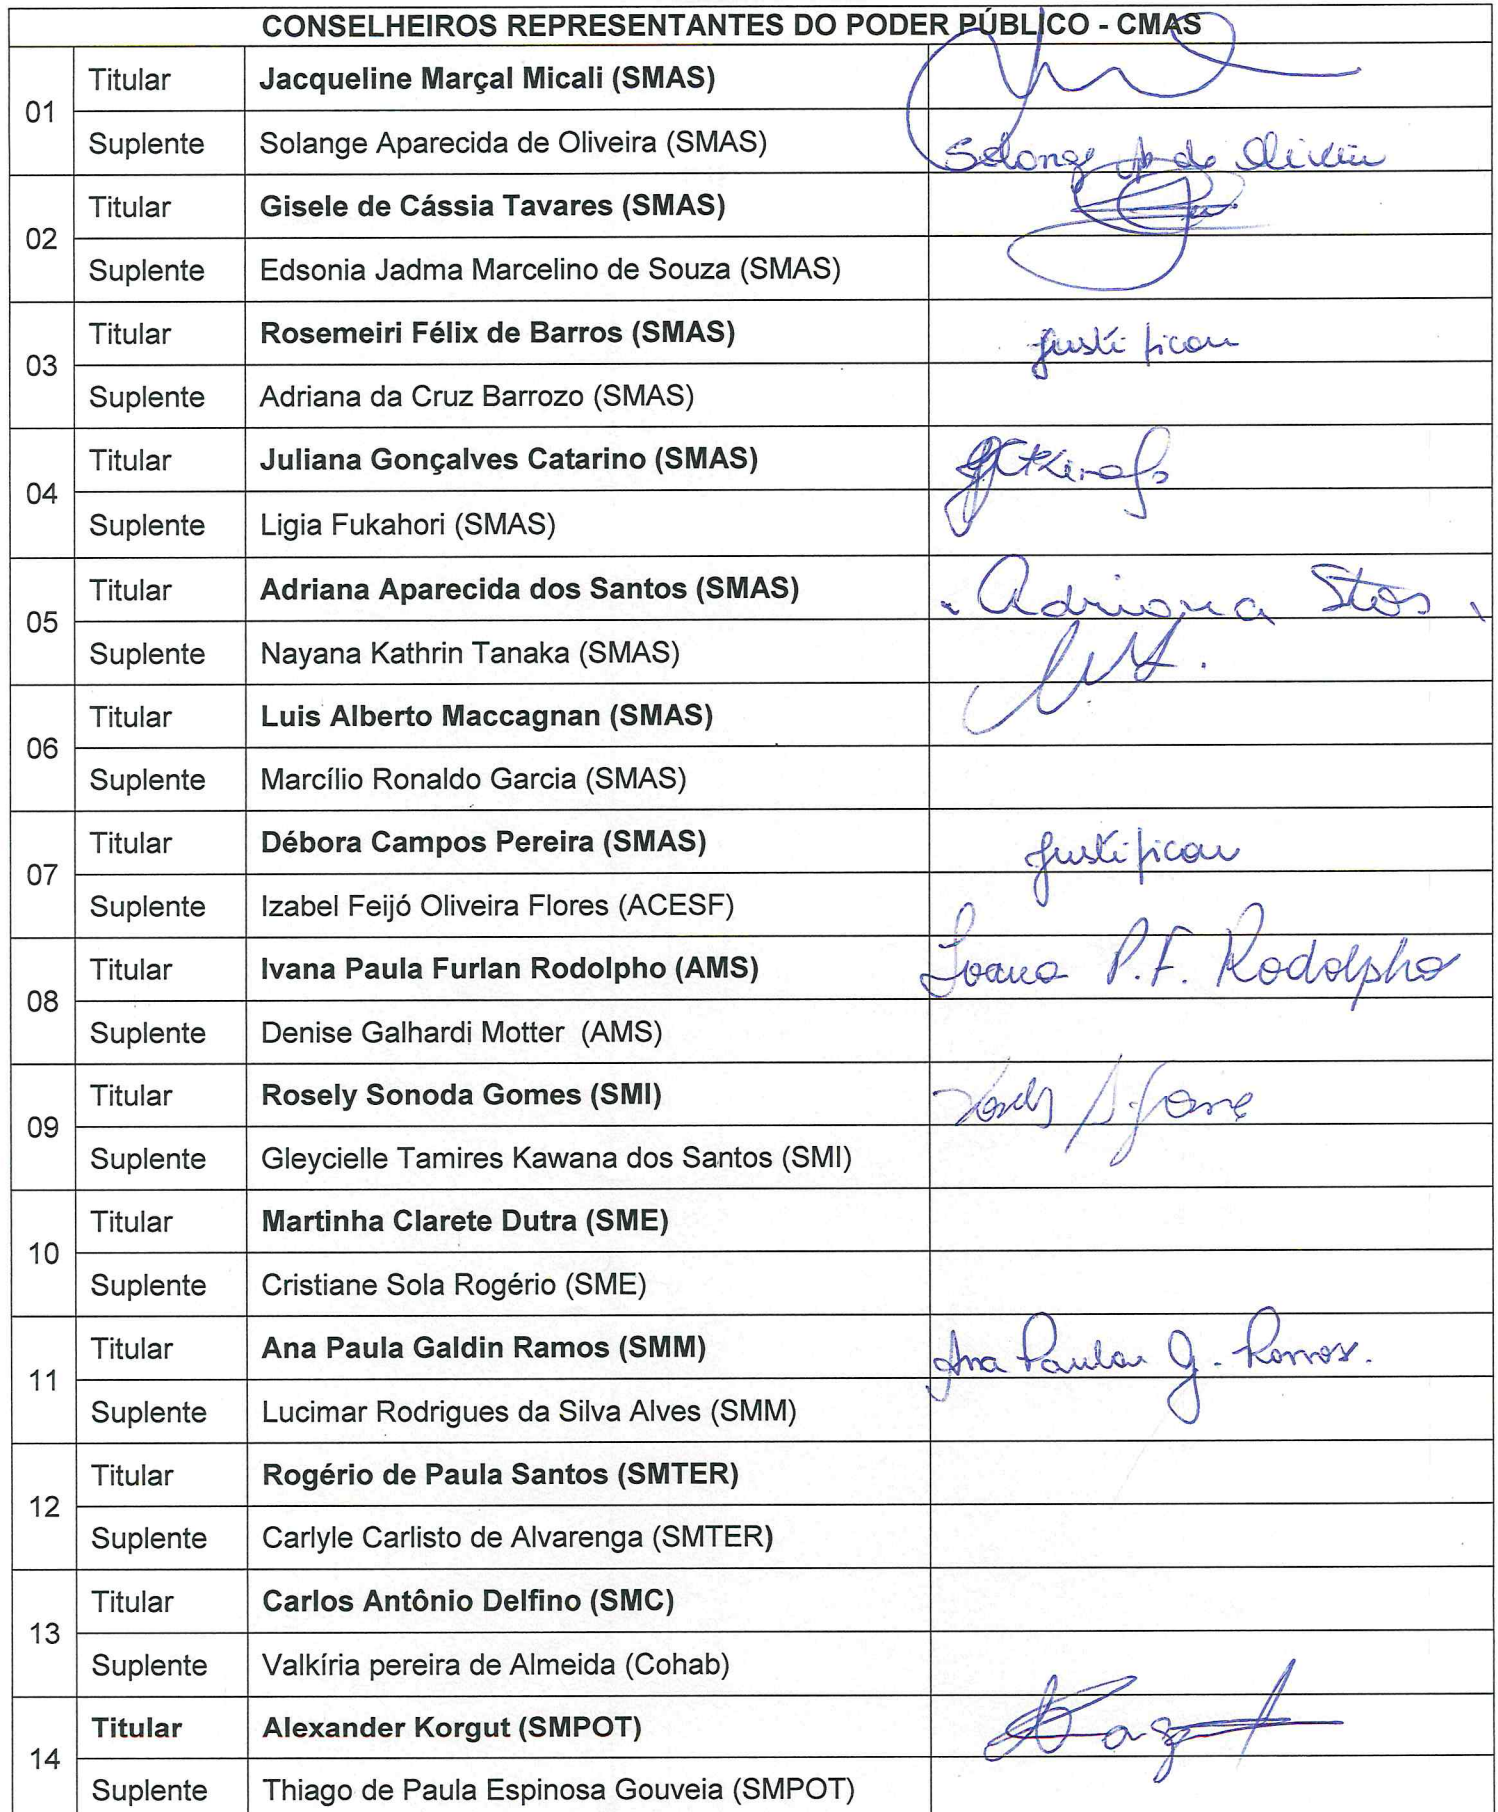 CONSELHEIROS REPRESENTANTES DO PODER PÚBLICO - CMAS
01
Titular Jacqueline Marçal Micali (SMAS)
Suplente Solange Aparecida de Oliveira (SMAS) Solange Ap de Oliveira
02
Titular Gisele de Cássia Tavares (SMAS)
Suplente Edsonia Jadma Marcelino de Souza (SMAS)
03
Titular Rosemeiri Félix de Barros (SMAS) justificou
Suplente Adriana da Cruz Barrozo (SMAS)
04
Titular Juliana Gonçalves Catarino (SMAS)
Suplente Ligia Fukahori (SMAS)
05
Titular Adriana Aparecida dos Santos (SMAS) Adriana Stos
Suplente Nayana Kathrin Tanaka (SMAS)
06
Titular Luis Alberto Maccagnan (SMAS)
Suplente Marcílio Ronaldo Garcia (SMAS)
07
Titular Débora Campos Pereira (SMAS) justificou
Suplente Izabel Feijó Oliveira Flores (ACESF)
08
Titular Ivana Paula Furlan Rodolpho (AMS) Ivana P. F. Rodolpho
Suplente Denise Galhardi Motter (AMS)
09
Titular Rosely Sonoda Gomes (SMI)
Suplente Gleycielle Tamires Kawana dos Santos (SMI)
10
Titular Martinha Clarete Dutra (SME)
Suplente Cristiane Sola Rogério (SME)
11
Titular Ana Paula Galdin Ramos (SMM) Ana Paula G. Ramos.
Suplente Lucimar Rodrigues da Silva Alves (SMM)
12
Titular Rogério de Paula Santos (SMTER)
Suplente Carlyle Carlisto de Alvarenga (SMTER)
13
Titular Carlos Antônio Delfino (SMC)
Suplente Valkíria pereira de Almeida (Cohab)
14
Titular Alexander Korgut (SMPOT)
Suplente Thiago de Paula Espinosa Gouveia (SMPOT)